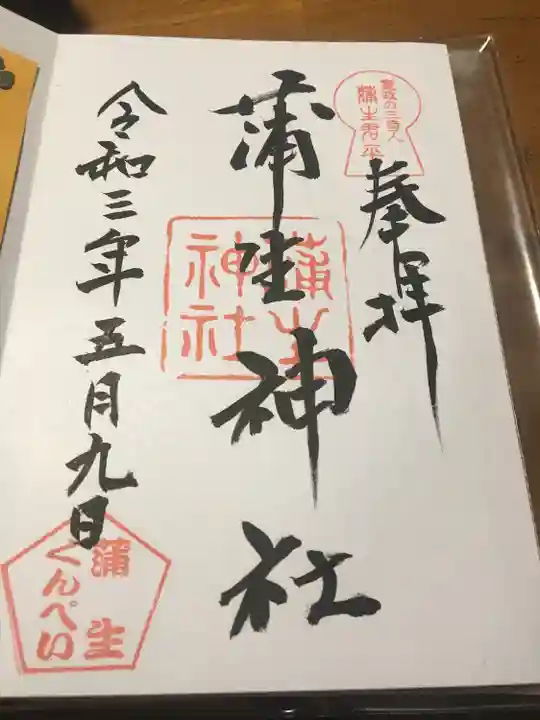 奉拝
寛政の三奇人
蒲生君平
蒲生神社
蒲生
神社
令和三年五月九日
蒲生
くんぺい